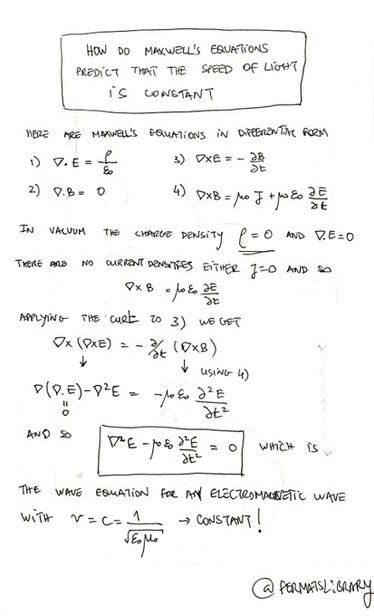 HOW DO MAXWELL'S EQUATIONS
PREDICT THAT THE SPEED OF LIGHT
IS CONSTANT
HERE ARE MAXWELL'S EQUATIONS IN DIFFERENTIAL FORM
1) ∇.E = ρ/ε₀ 3) ∇×E = - ∂B/∂t
2) ∇.B = 0 4) ∇×B = μ₀ J + μ₀ε₀ ∂E/∂t
IN VACUUM THE CHARGE DENSITY ρ = 0 AND ∇.E=0
THERE ARE NO CURRENT DENSITIES EITHER J=0 AND SO
∇×B = μ₀ε₀ ∂E/∂t
APPLYING THE CURL TO 3) WE GET
∇×(∇×E) = - ∂/∂t (∇×B)
↓ ↓ USING 4)
∇(∇.E)-∇²E = -μ₀ε₀ ∂²E/∂t²
"
0
AND SO ∇²E - μ₀ε₀ ∂²E/∂t² = 0 WHICH IS
THE WAVE EQUATION FOR AN ELECTROMAGNETIC WAVE
WITH v = c = 1/√ε₀μ₀ → CONSTANT!
@FERMATSLIBRARY